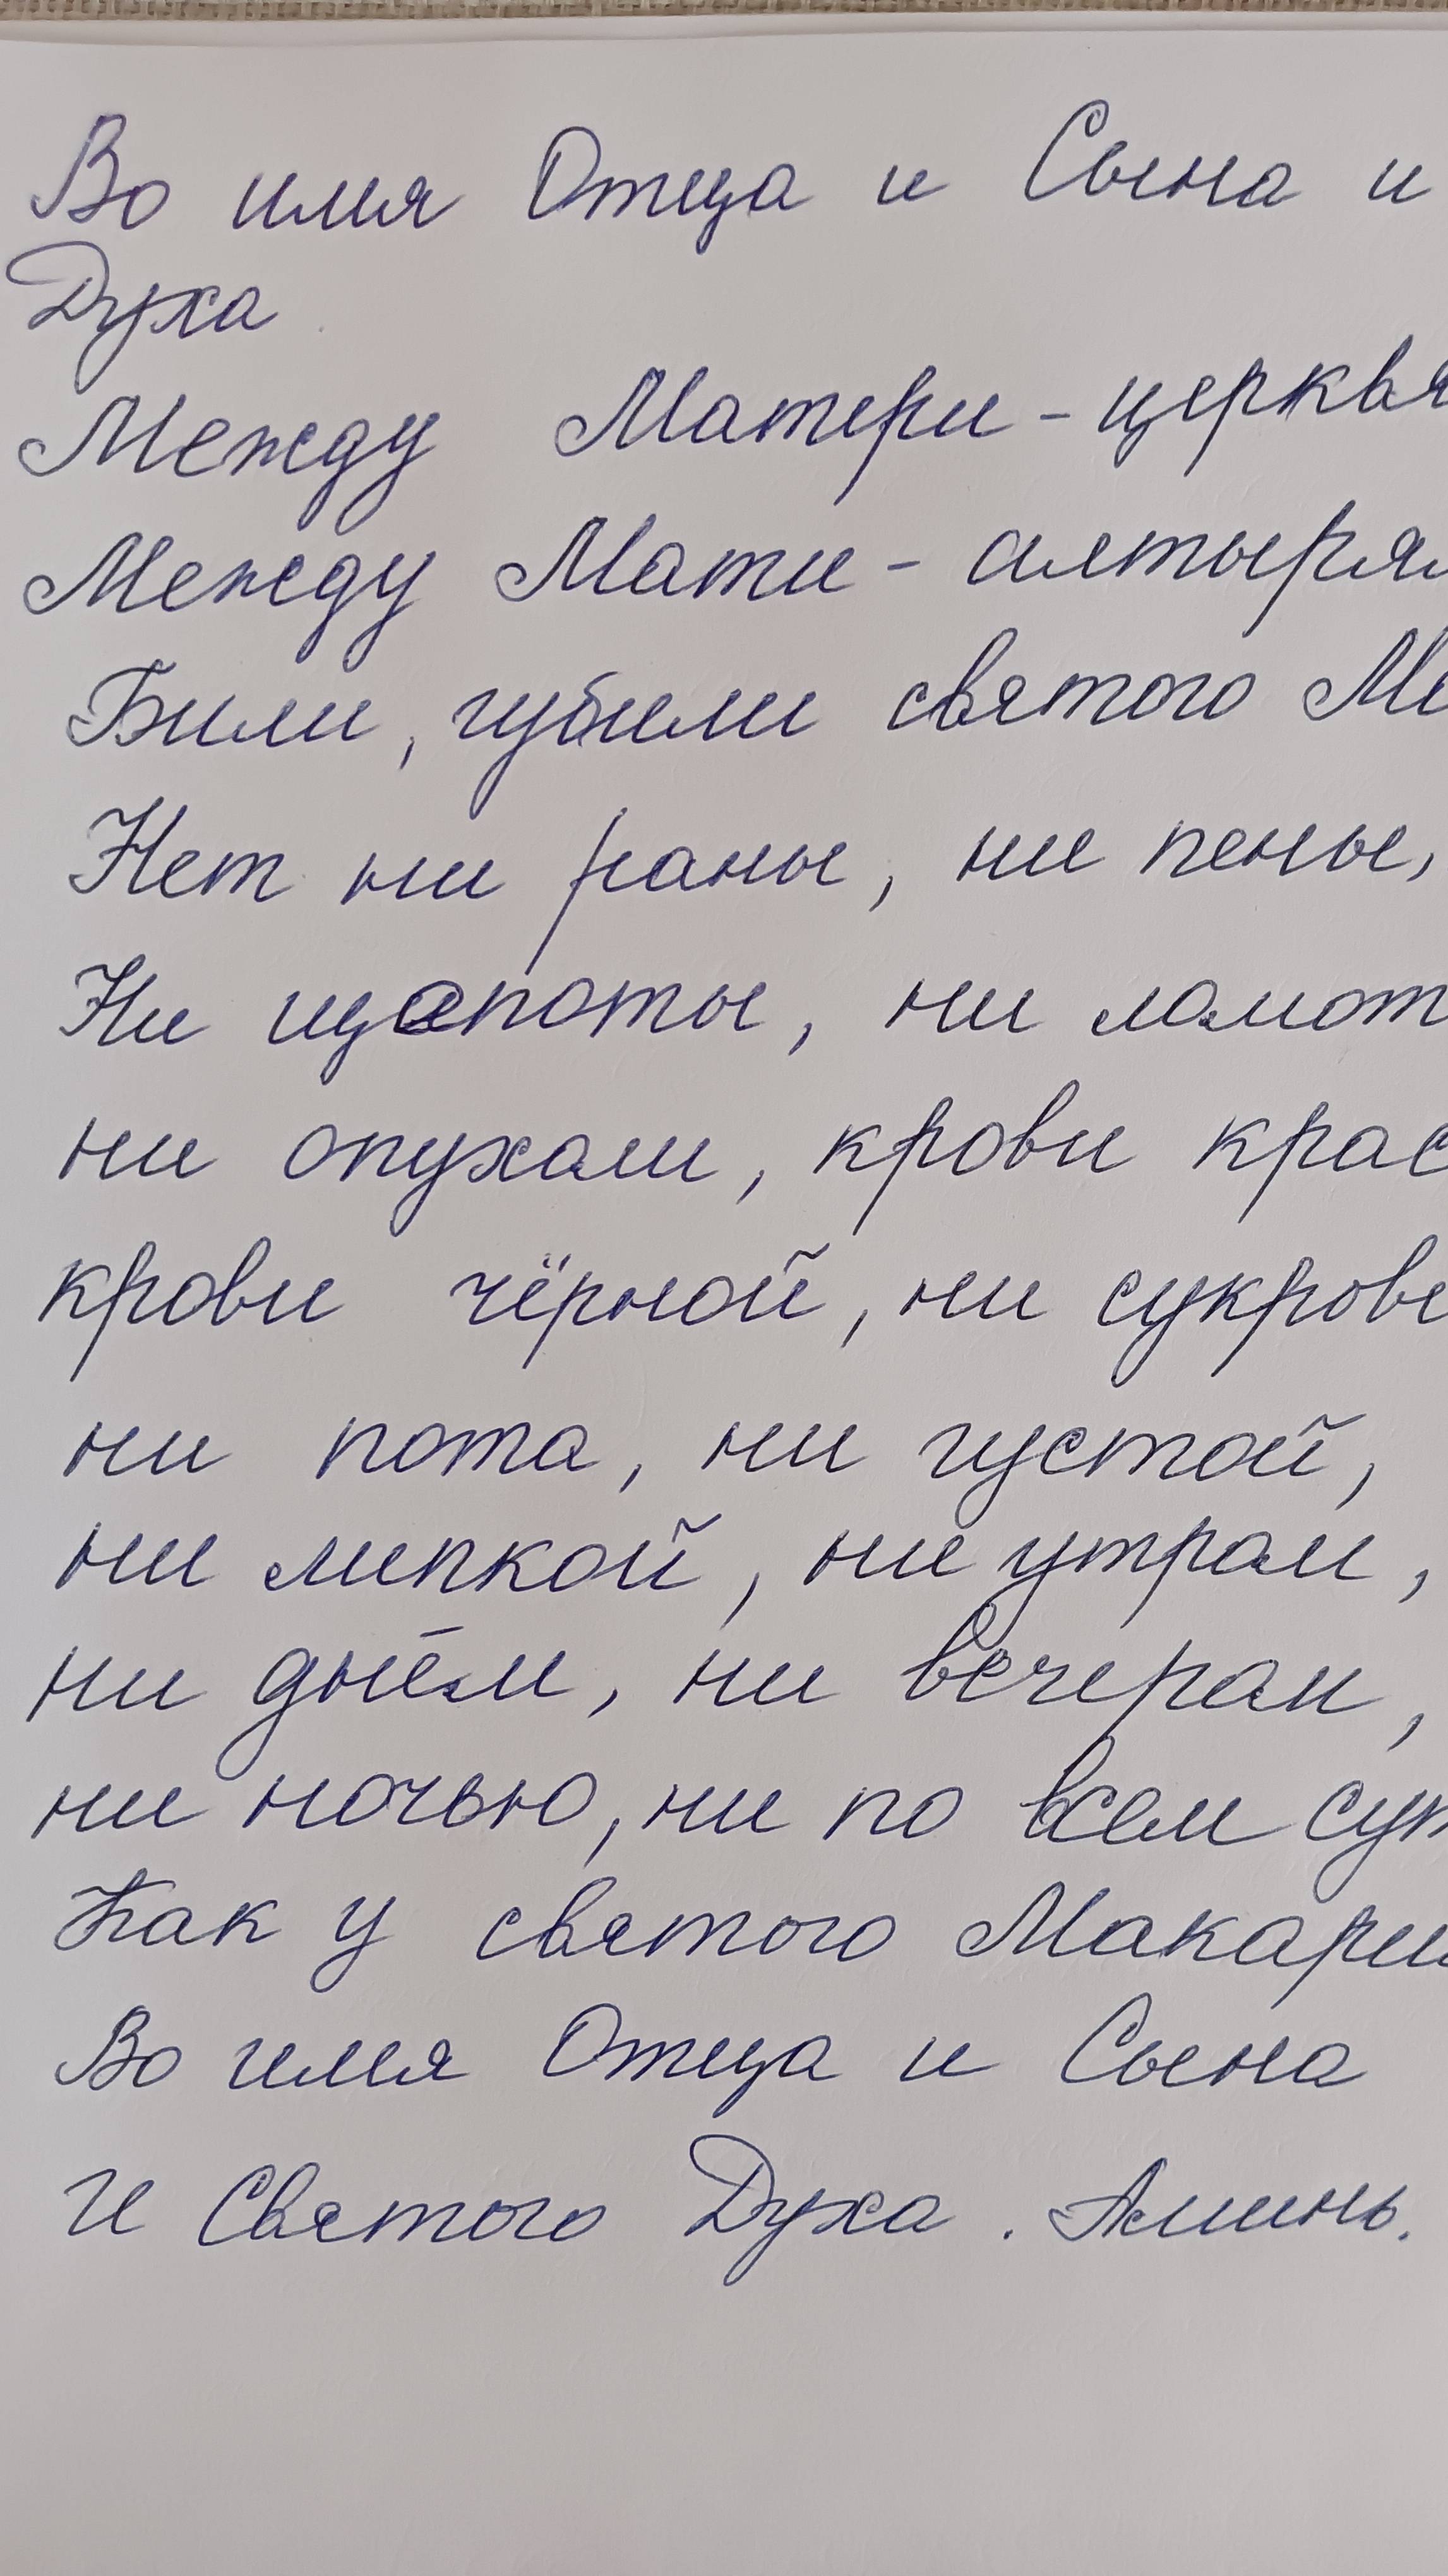 Во имя Отца и Сына и
Духа
Между Матери - церквя
Между Мати - алтыря
Били, губили святого М
Нет ни раны, ни пены,
Ни щапоты, ни ломот
ни опухали, крови крас
крови чёрной, ни сукрове
ни пота, ни густой,
ни липкой, ни утром,
ни днём, ни вечерам,
ни ночью, ни по всем сут
Как у святого Макари
Во имя Отца и Сына
И Святого Духа. Аминь.